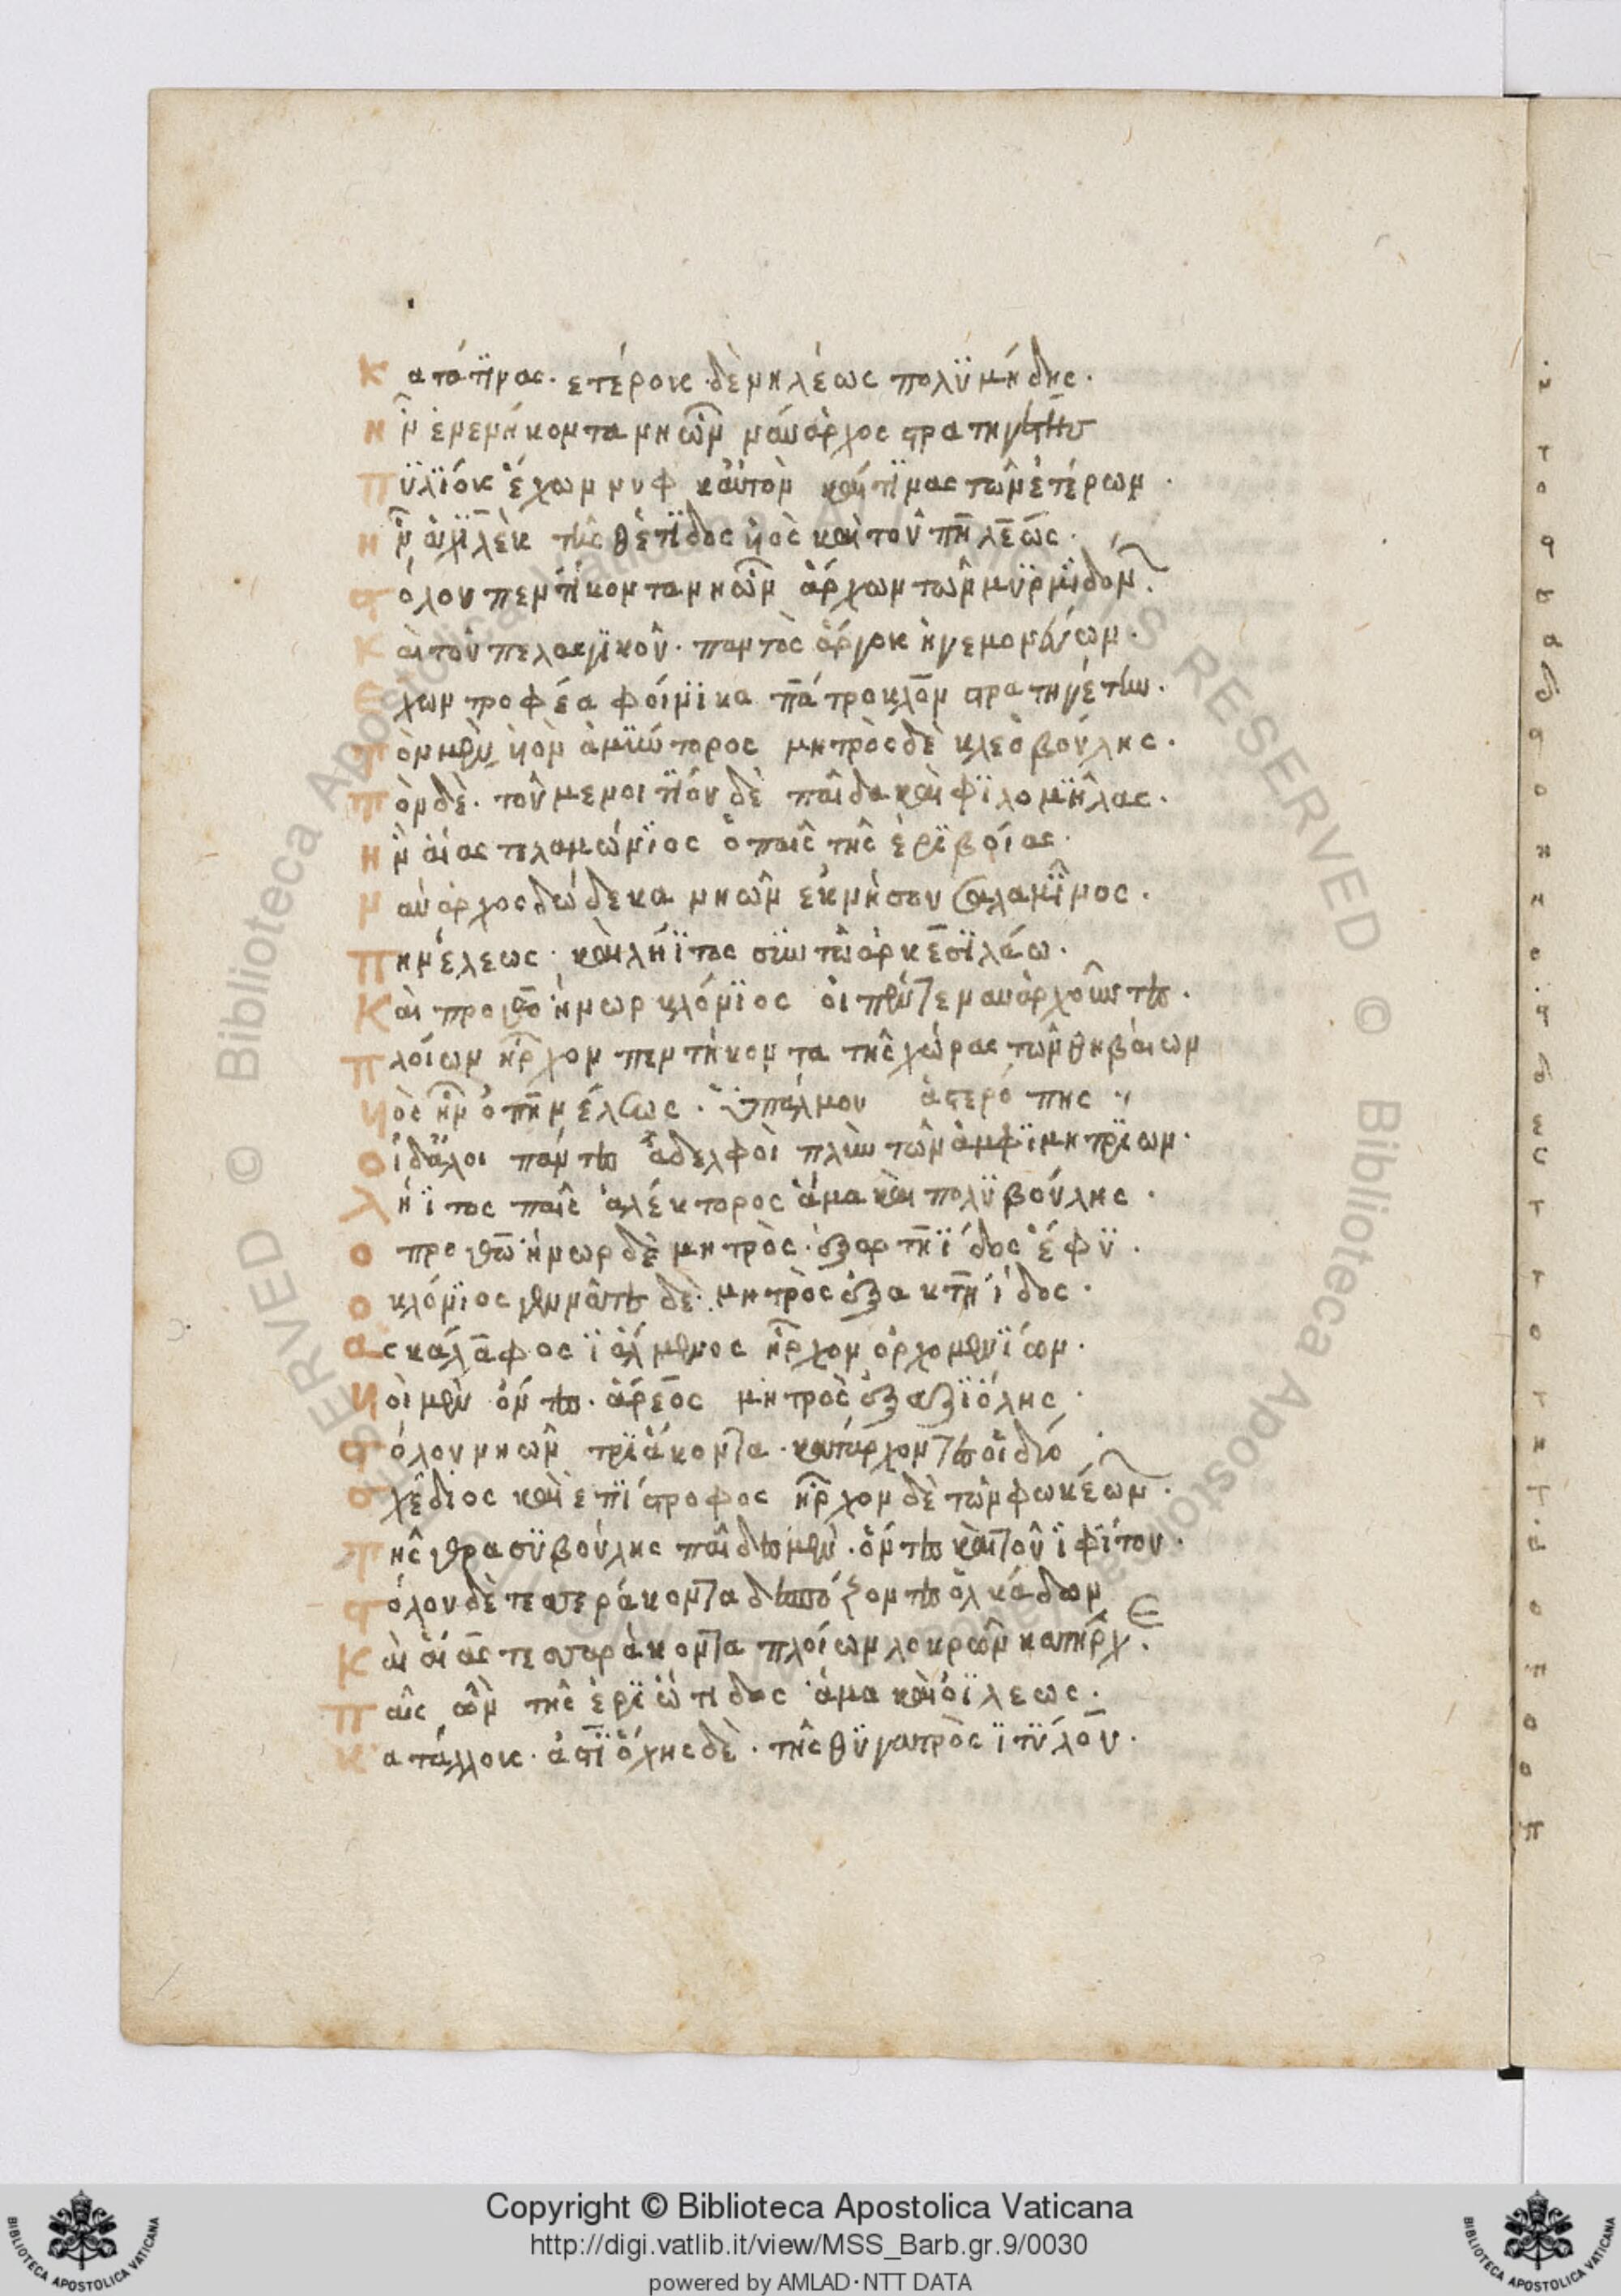 Κατά τϊνας· ετέροις δὲ νηλέως πολϋμήδης·
Ἦν ἐνενήκοντα νηῶν ναύαρχος στρατηγέτης
Πϋλΐοις ἔχων
καὶ τϊνας τῶν ἑτέρων·
Ἦν ἀχϊλλεὺς τῆς θέτϊδος ὑὸς καὶ τοῦ πηλέως·
Στόλου πεντήκοντα νηῶν ἄρχων τῶν μϋρμϊδόνων·
Καὶ τοῦ πελασγϊκοῦ· παντὸς ἄργους ἡγεμονεύων·
Ἔχων τροφέα φοίνϊκα πάτροκλον στρατηγέτην·
Τὸν μὲν ὑὸν ἀμϋντορος μητρὸς δὲ κλεοβούλης·
Τὸν δὲ· τοῦ μενοιτΐου δὲ παῖδα καὶ φϊλομήλας·
Ἦν αἴας τελαμώνϊος ὁ παῖς τῆς ἐρϊβοίας·
Ναύαρχος δώδεκα νηῶν ἐκ νήσου σαλαμῖνος·
Πηνέλεως· καὶ λήϊτος σὺν τῶ ἀρκεσϊλάω·
Καὶ προθοήνωρ κλόνϊος οἱ πέντε ναυαρχοῦντες·
Πλοίων ἦρχον πεντήκοντα τῆς χώρας τῶν θηβαίων
Ὑὸς ἦν ὁ πηνέλεως· ϊππάλμου ἀστερόπης
Οἱ δ' ἄλλοι πάντες ἀδελφοὶ πλὴν τῶν ἀμφϊμητρΐων·
Λήϊτος παῖς ἀλέκτορος ἅμα καὶ πολϋβούλης·
Ὁ προθοήνωρ δὲ μητρὸς ἐξ ἀρτηΐδος ἔφϋ·
Ὁ κλόνϊος γεννᾶται δὲ μητρὸς ἐξ ἀκτηΐδος·
Ἀσκάλαφος ϊάλμενος ἦρχον ὀρχομενΐων·
Ὑοὶ μὲν ὄντες· ἄρεος μητρὸς ἐξ ἀζϊόλης·
Στόλου νηῶν τρϊάκοντα· κατάρχοντες οἱ δύο
Σχέδϊος καὶ ἐπΐστροφος ἦρχον δὲ τῶν φωκέων·
Τῆς θρασϋβούλης παῖδες μὲν· ὄντες καὶ τοῦ ϊφΐτου·
Στόλου δὲ τεσσεράκοντα δεσπόζοντες ὁλκάδων
Καὶ αἴας τεσσαράκοντα πλοίων λοκρῶν κατῆρχε·
Παῖς ὢν τῆς ἐρϊώπιδος ἅμα καὶ ὀϊλεως·
Κατ' ἄλλους· ἀστϊόχης δὲ· τῆς θϋγατρὸς ϊτϋλου·
Copyright © Biblioteca Apostolica Vaticana
http://digi.vatlib.it/view/MSS_Barb.gr.9/0030
powered by AMLAD·NTT DATA